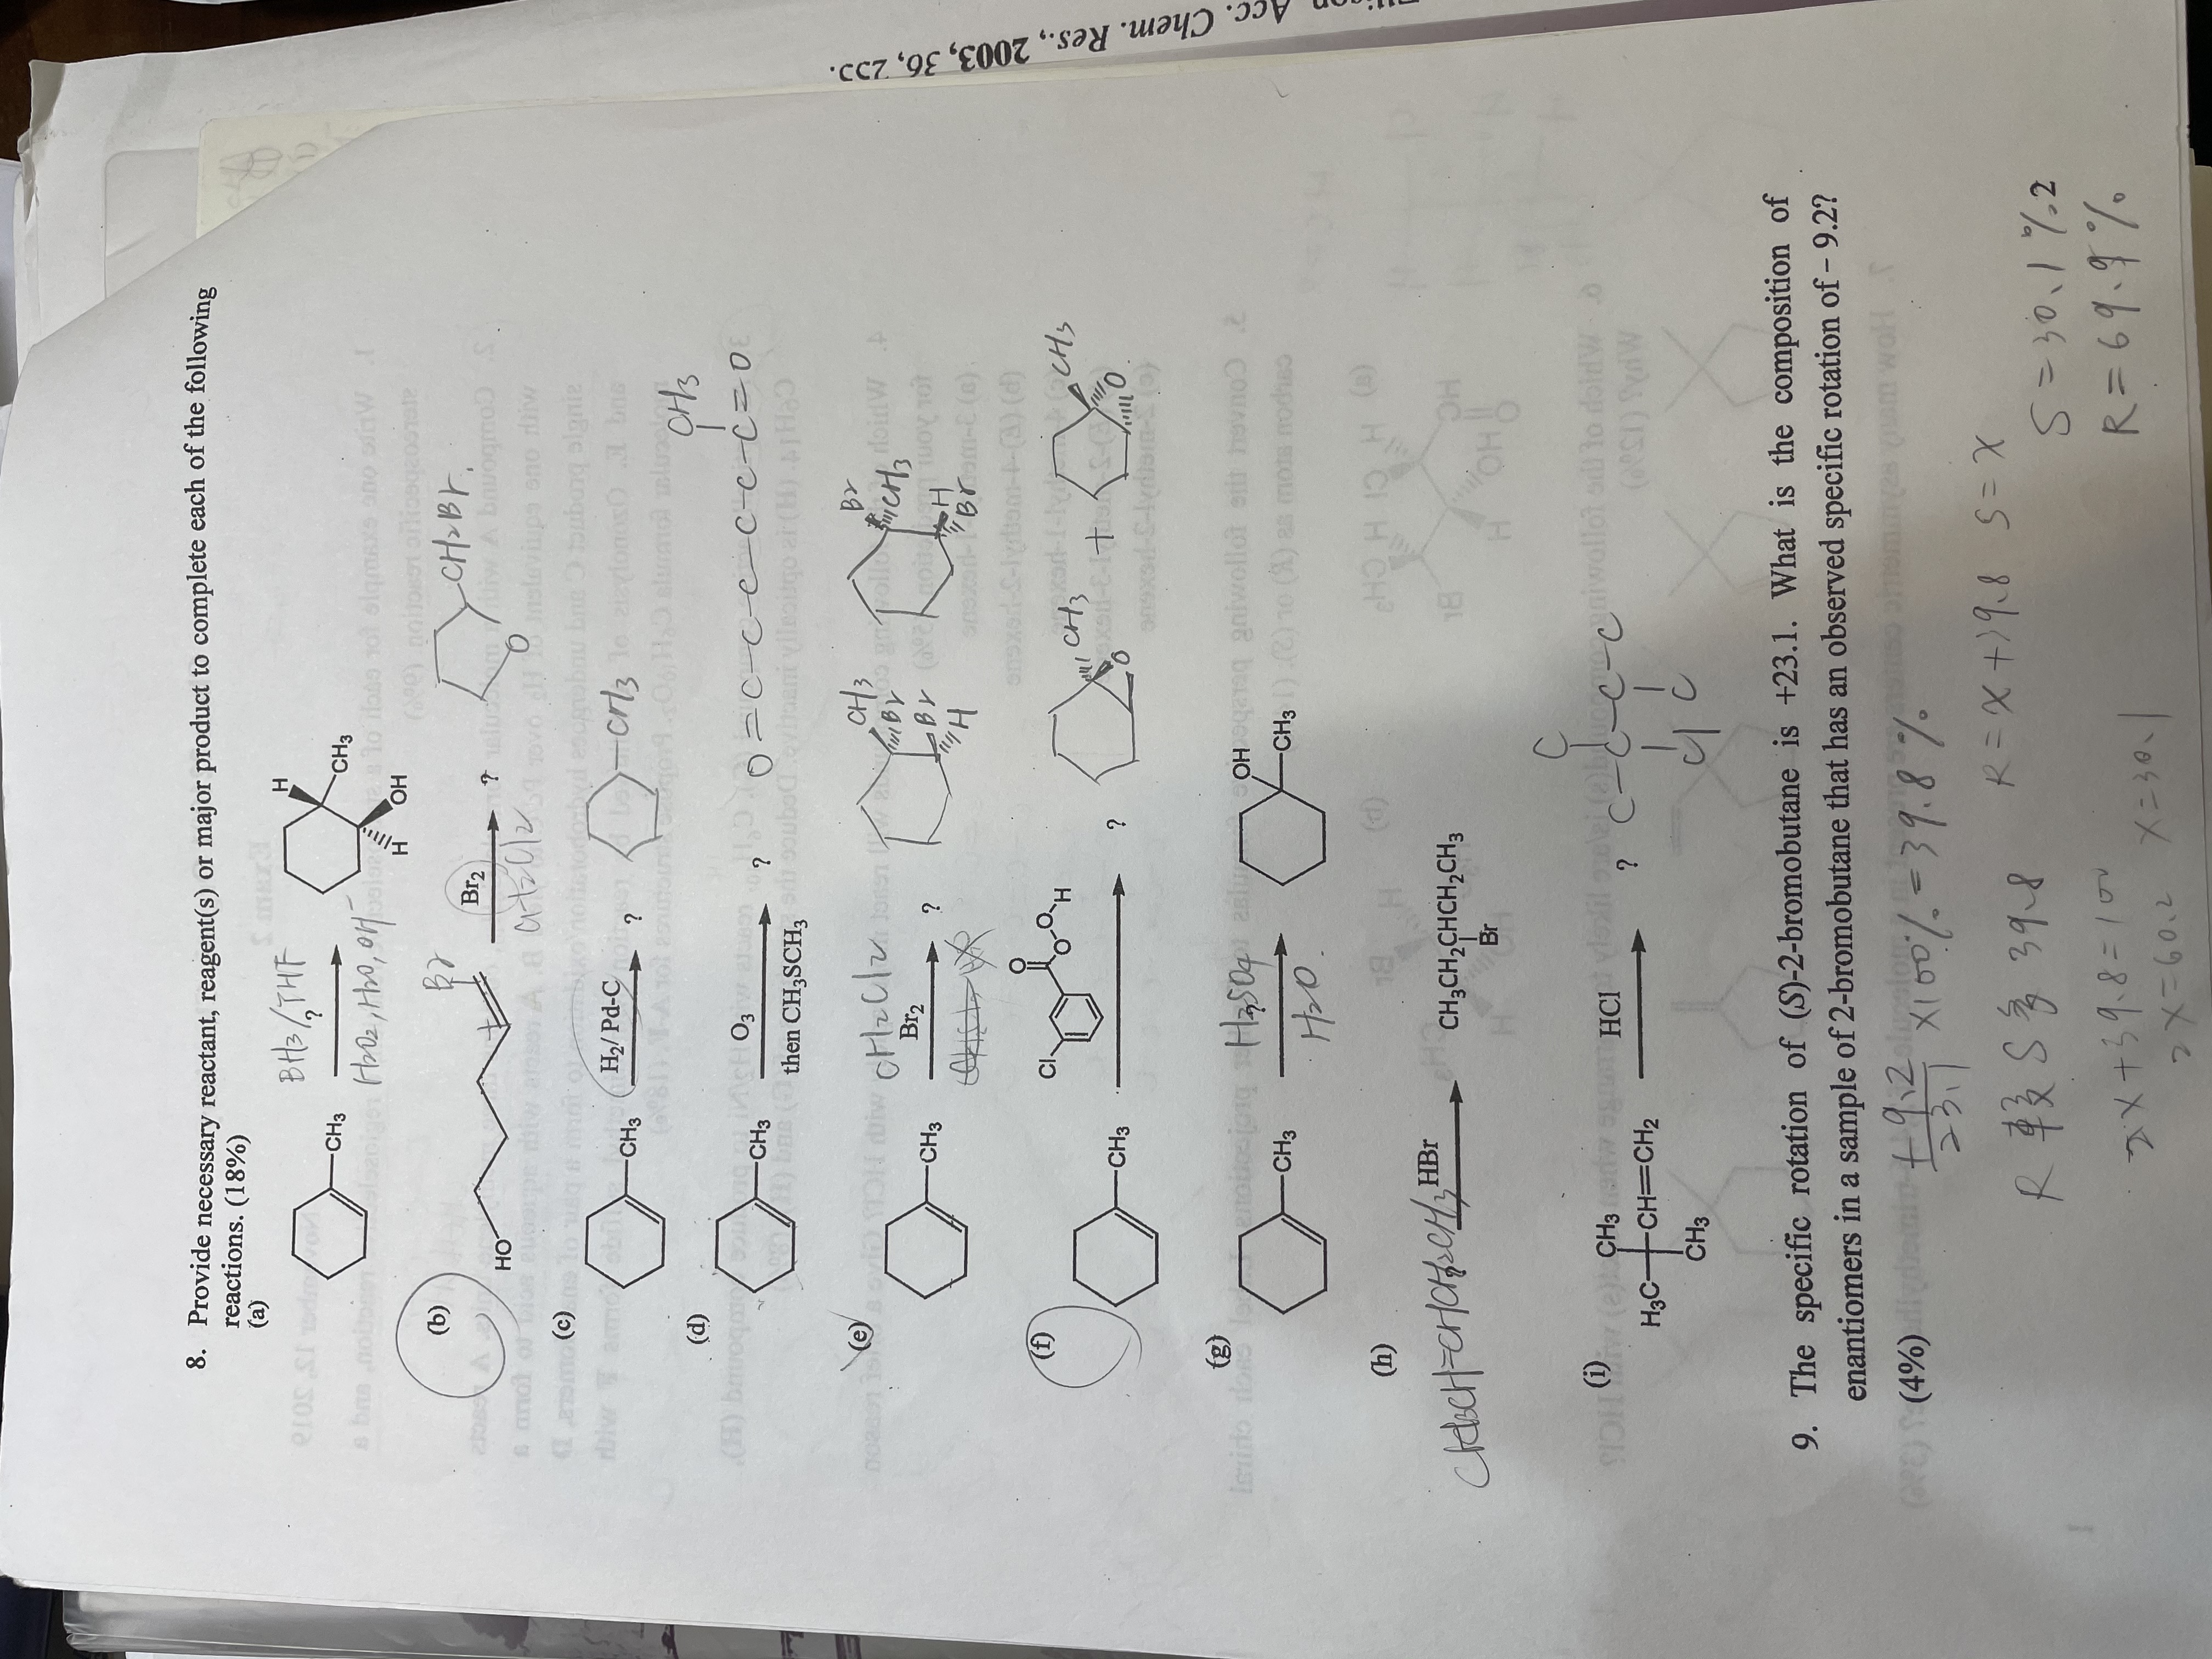 8. Provide necessary reactant, reagent(s) or major product to complete each of the following
reactions. (18%)
(a)
CH3
BH3/THF
?
H2O2, H2O, OH-
H
CH3
H
OH
(b)
HO
Br
Br2
CH2Cl2
?
CH2Br.
O
(c)
CH3
H2/ Pd-C
?
CH3
(d)
CH3
O3
then CH3SCH3
?
CH3
O=C-C-C-C-C-C=O
(e)
CH3
CH2Cl2
Br2
?
CH3
Br
Br
H
Br
CH3
H
Br
(f)
CH3
Cl
O
O
O
H
?
CH3
O
+
CH3
O
(g)
CH3
H2SO4
?
H2O.
OH
CH3
(h)
CH3CH=CHCH2CH3
?
HBr
CH3CH2CHCH2CH3
Br
(i)
CH3
H3C
CH=CH2
CH3
HCl
?
C
C-C-C-C
Cl C
9. The specific rotation of (S)-2-bromobutane is +23.1. What is the composition of
enantiomers in a sample of 2-bromobutane that has an observed specific rotation of – 9.2?
(4%)
+9.2
23.1
×100% = 39.8%
R 較 S 多 39.8
R = x + 39.8 S = x
2x+39.8=100
2x=60.2 x=30.1
S = 30.1%
2
R = 69.9%
Acc. Chem. Res., 2003, 36, 255.